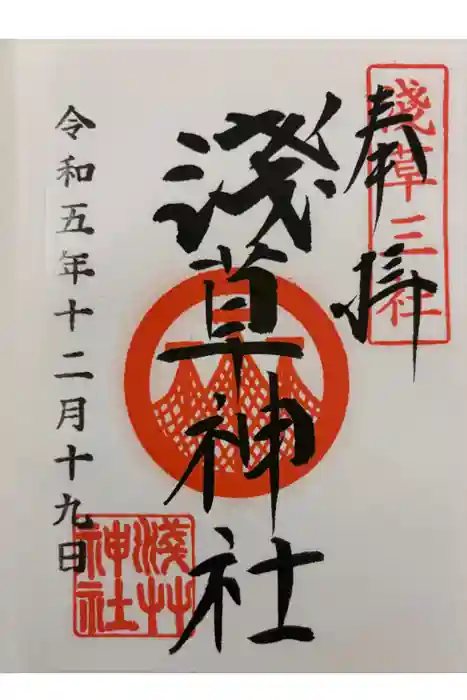 奉拝
淺草三社
淺草神社
令和五年十二月十九日
淺草神社